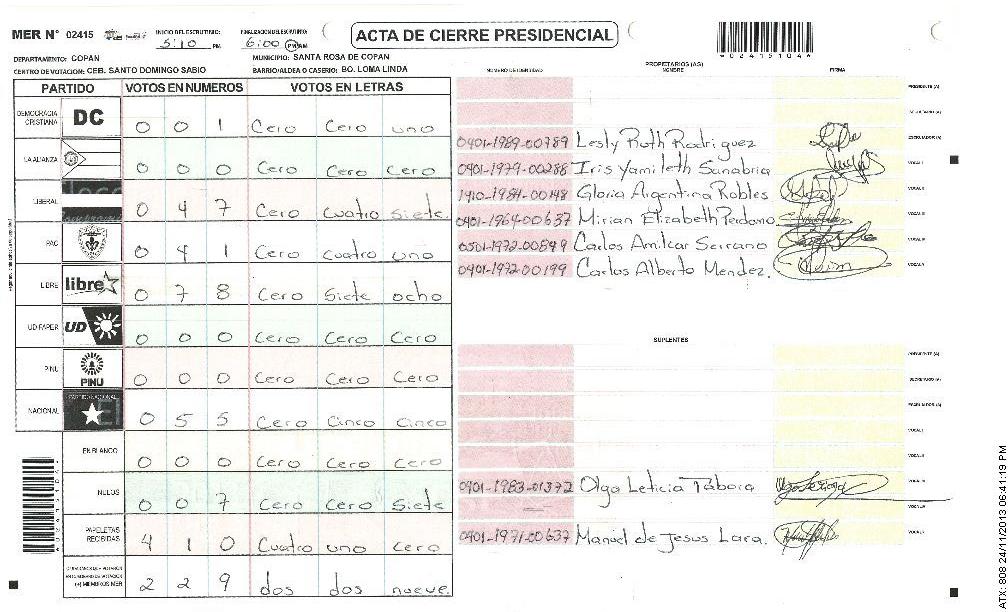 MER N° 02415
INICIO DEL ESCRUTINIO: 5:10 PM
FINALIZACION DEL ESCRUTINIO: 6:00 PM AM
ACTA DE CIERRE PRESIDENCIAL
DEPARTAMENTO: COPAN
MUNICIPIO: SANTA ROSA DE COPAN
CENTRO DE VOTACION: CEB. SANTO DOMINGO SABIO
BARRIO/ALDEA O CASERIO: BO. LOMA LINDA
PARTIDO VOTOS EN NUMEROS VOTOS EN LETRAS
DEMOCRACIA CRISTIANA DC 0 0 1 Cero Cero uno
LA ALIANZA 0 0 0 Cero Cero Cero
LIBERAL 0 4 7 Cero Cuatro Siete
PAC 0 4 1 Cero cuatro uno
LIBRE libre 0 7 8 Cero Siete ocho
UD FAPER UD 0 0 0 Cero Cero Cero
PINU PINU 0 0 0 Cero Cero Cero
NACIONAL PARTIDO NACIONAL 0 5 5 Cero Cinco Cinco
EN BLANCO 0 0 0 Cero Cero Cero
NULOS 0 0 7 Cero Cero Siete
PAPELETAS RECIBIDAS 4 1 0 Cuatro uno Cero
(+) MIEMBROS MER 2 2 9 dos dos nueve
*02415104*
PROPIETARIOS (AS)
NUMERO DE IDENTIDAD NOMBRE FIRMA
PRESIDENTE (A)
SECRETARIO (A)
0401-1989-00789 Lesly Ruth Rodriguez ESCRUTADOR (A)
0401-1979-00288 Iris Yamileth Sanabria VOCAL I
1410-1984-00148 Gloria Argentina Robles VOCAL II
0401-1964-00637 Mirian Elizabeth Perdomo VOCAL III
0501-1972-00849 Carlos Amilcar Serrano VOCAL IV
0401-1972-00199 Carlos Alberto Mendez. VOCAL V
SUPLENTES
PRESIDENTE (A)
SECRETARIO (A)
ESCRUTADOR (A)
VOCAL I
VOCAL II
0401-1983-01372 Olga Leticia Tabora VOCAL III
VOCAL IV
0401-1971-00637 Manuel de Jesus Lara. VOCAL V
ATX: 808 24/11/2013 06:41:19 PM